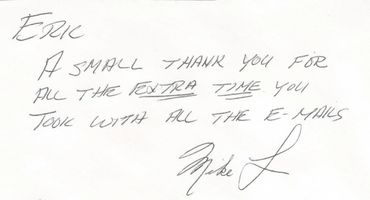 ERIC
A SMALL THANK YOU FOR
ALL THE EXTRA TIME YOU
TOOK WITH ALL THE E-MAILS
Mike L